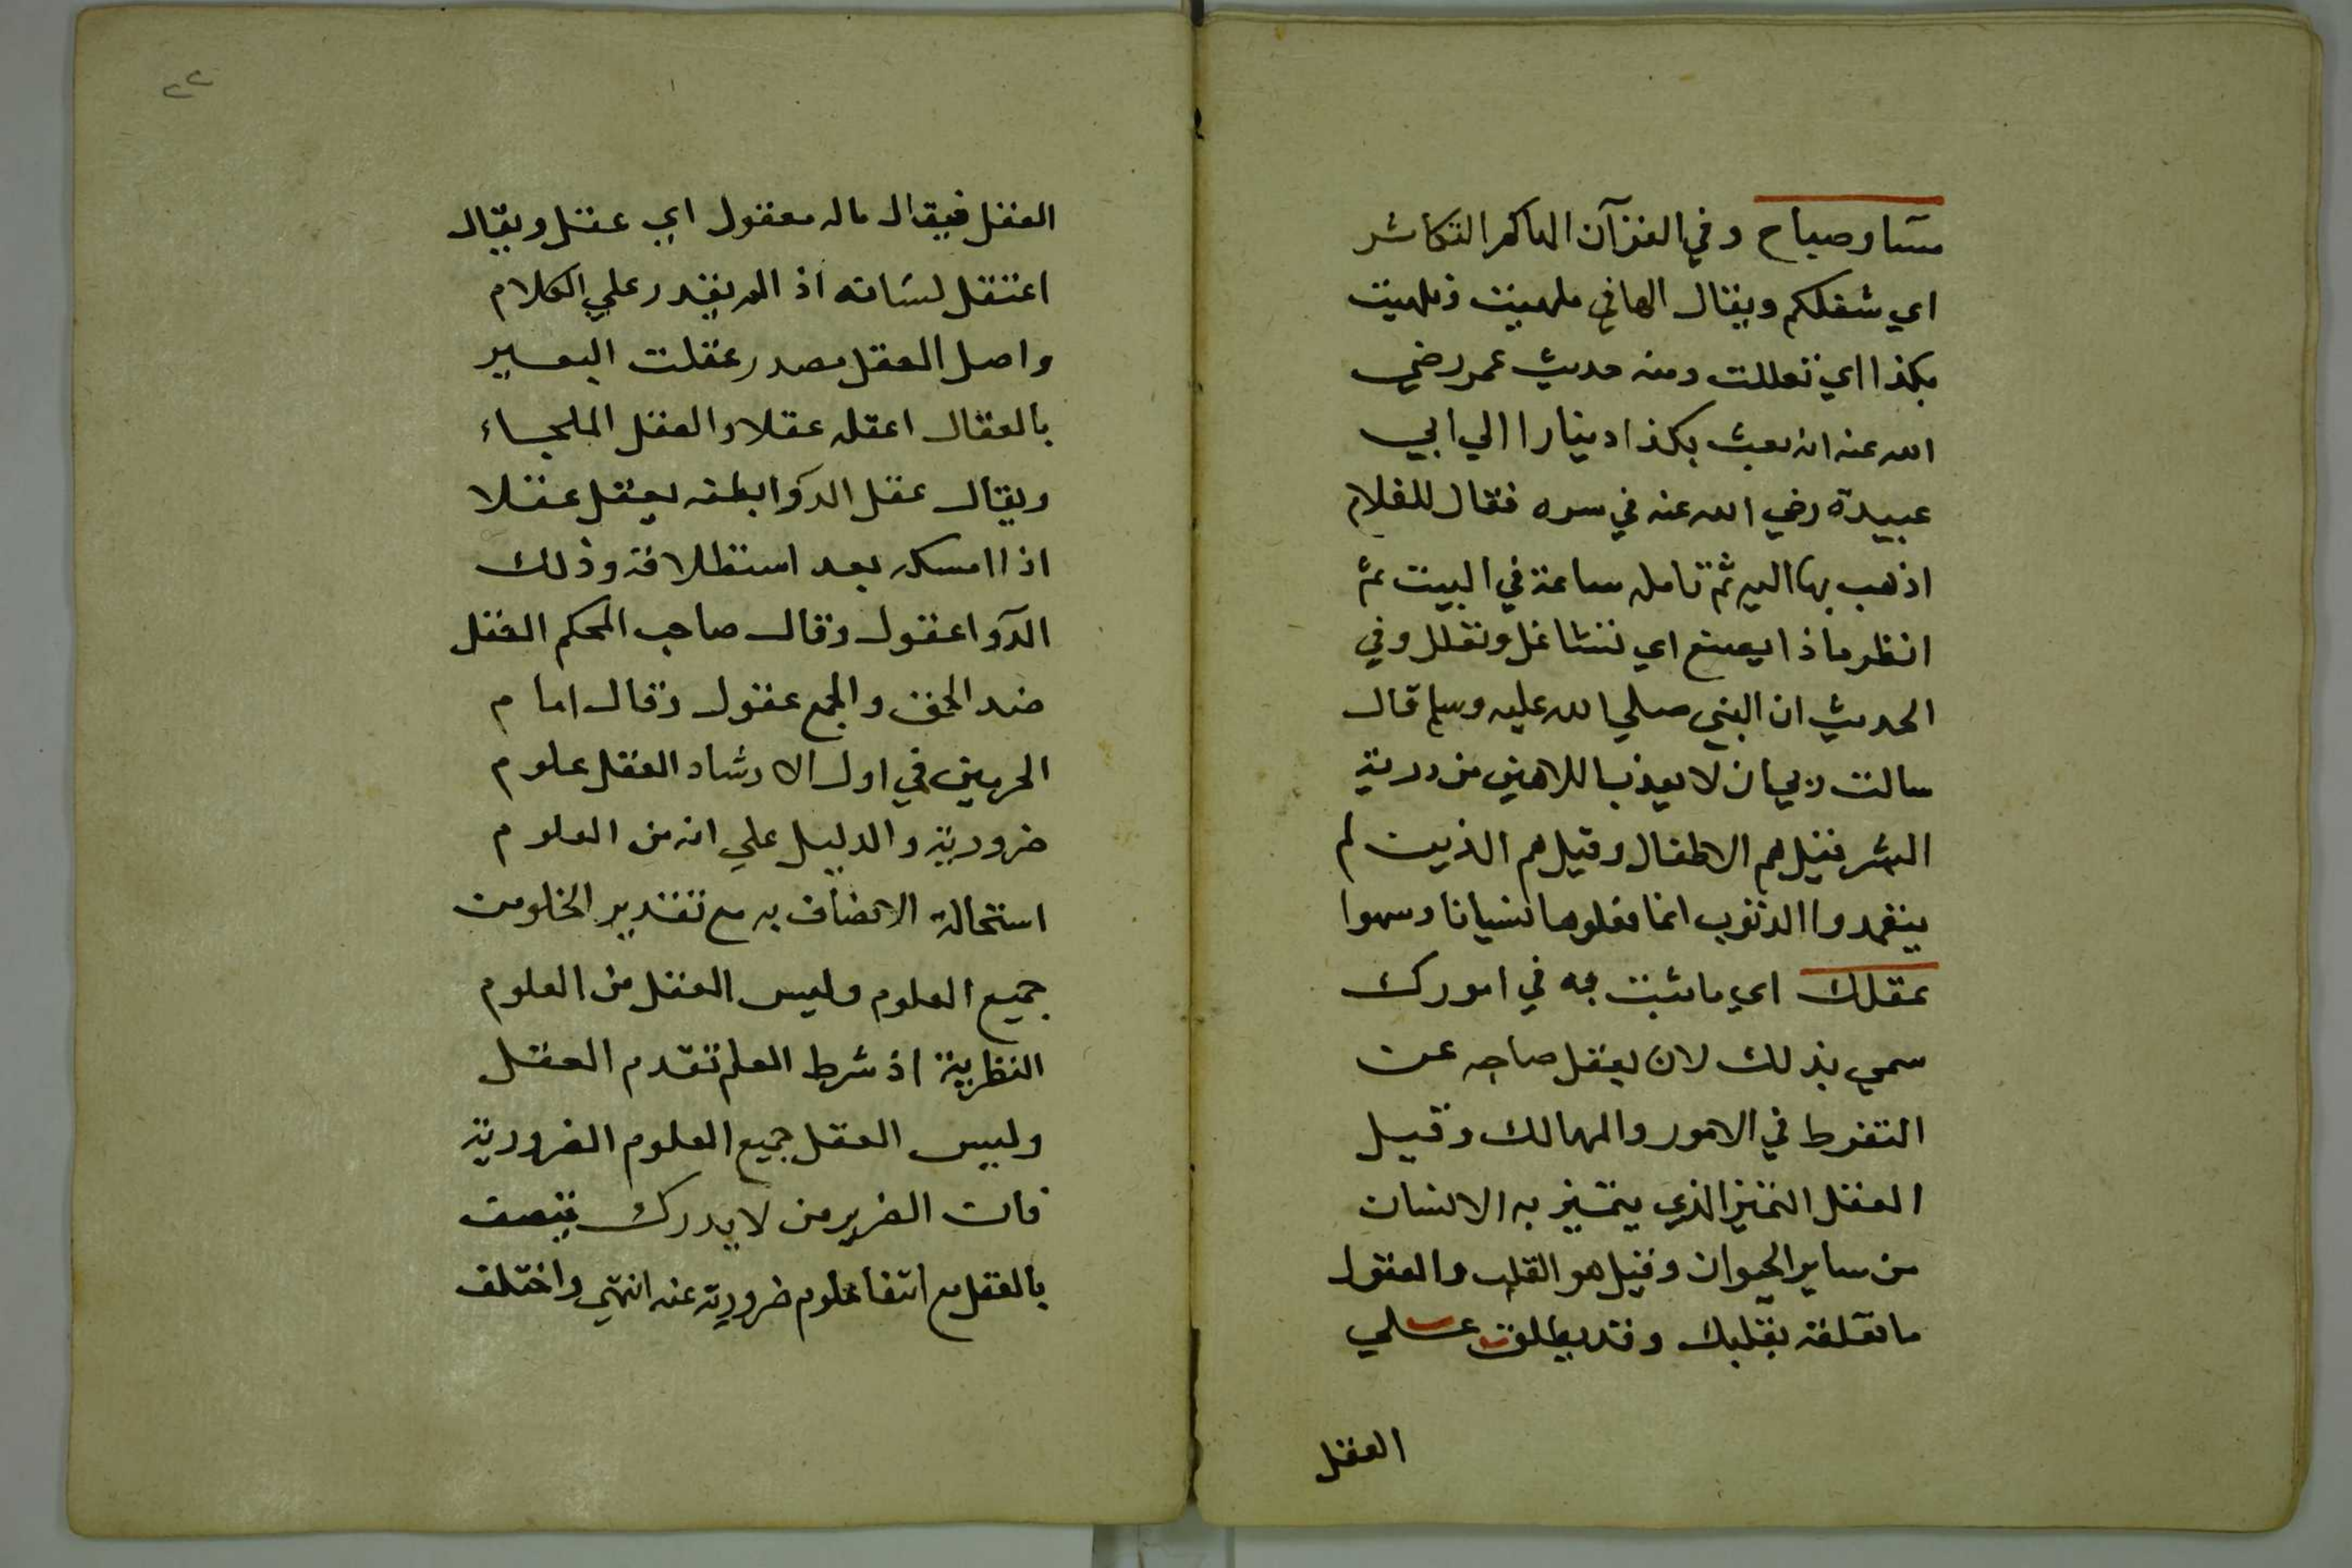 مسا وصباح وفي القرآن الهاكم التكاثر
اي شغلكم ويقال الهاني ملهيت وتلهيت
بكذا اي تعللت ومنه حديث عمر رضي
الله عنه انه بعث بكذا دينارا الي ابي
عبيدة رضي الله عنه في سره فقال للغلام
اذهب بها اليه ثم تامله ساعة في البيت ثم
انظر ماذا يصنع اي تتشاغل وتعلل وفي
الحديث ان النبي صلي الله عليه وسلم قال
سالت ربي ان لا يعذب اللاهين من ذرية
البشر فقيل هم الاطفال وقيل هم الذين لم
يتعمدوا الذنوب انما فعلوها نسيانا وسهوا
عقلك اي ما تثبت به في امورك
سمي بذلك لان يعقل صاحبه عن
التفرط في الامور والمهالك وقيل
العقل التمييز الذي يتميز به الانسان
من ساير الحيوان وقيل هو القلب والعقول
ما تعلقه بقلبك وقد يطلق علي
العقل
٢٢
العقل فيقال ماله معقول اي عقل ويقال
اعتقل لسانه اذ الم يقدر علي الكلام
واصل العقل مصدر عقلت البعير
بالعقال اعقله عقلا والعقل الملجاء
ويقال عقل الدوا بطنه يعقل عقلا
اذا امسكه بعد استطلاقه وذلك
الدوا عقول وقال صاحب المحكم العقل
ضد الحمق والجمع عقول وقال امام
الحرمين في اول الارشاد العقل علوم
ضرورية والدليل علي انه من العلوم
استحالة الاتصاف به مع تقدير الخلو من
جميع العلوم وليس العقل من العلوم
النظرية اذ شرط العلم تقدم العقل
وليس العقل جميع العلوم الضرورية
فان الضرير من لا يدرك يتصف
بالعقل مع انتفا علوم ضرورية عنه انتهي واختلف